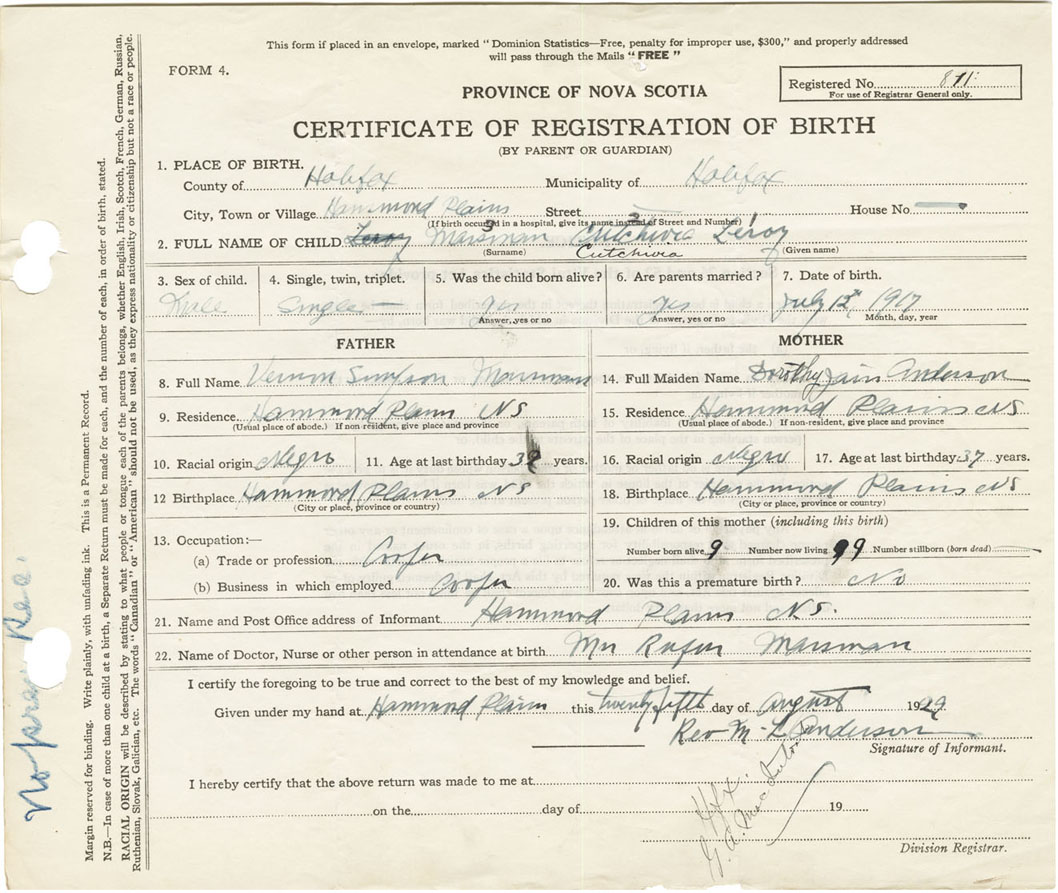 This form if placed in an envelope, marked "Dominion Statistics—Free, penalty for improper use, $300," and properly addressed
will pass through the Mails "FREE"
FORM 4.
Registered No. 811
For use of Registrar General only.
PROVINCE OF NOVA SCOTIA
CERTIFICATE OF REGISTRATION OF BIRTH
(BY PARENT OR GUARDIAN)
1. PLACE OF BIRTH.
County of Halifax Municipality of Halifax
City, Town or Village Hammond Plains Street House No.
(If birth occurred in a hospital, give its name instead of Street and Number)
2. FULL NAME OF CHILD Leroy Marsman Cutchivia Leroy
(Surname) Cutchivia (Given name)
3. Sex of child. 4. Single, twin, triplet. 5. Was the child born alive? 6. Are parents married? 7. Date of birth.
Single Yes Yes July 12 1917
Answer, yes or no Answer, yes or no Month, day, year
FATHER
8. Full Name Vernon Simpson Marsman
9. Residence Hammond Plains NS
(Usual place of abode.) If non-resident, give place and province
10. Racial origin Negro 11. Age at last birthday years.
12 Birthplace Hammond Plains NS
(City or place, province or country)
13. Occupation:—
(a) Trade or profession Cooper
(b) Business in which employed Cooper
MOTHER
14. Full Maiden Name Dorothy Anderson
15. Residence Hammond Plains NS
(Usual place of abode.) If non-resident, give place and province
16. Racial origin Negro 17. Age at last birthday 37 years.
18. Birthplace Hammond Plains NS
(City or place, province or country)
19. Children of this mother (including this birth)
Number born alive 9 Number now living 9 Number stillborn (born dead)
20. Was this a premature birth? No
21. Name and Post Office address of Informant Hammond Plains NS.
22. Name of Doctor, Nurse or other person in attendance at birth Mrs Rufus Marsman
I certify the foregoing to be true and correct to the best of my knowledge and belief.
Given under my hand at Hammond Plains this twenty fifth day of August 1929
Rev M. L Anderson
Signature of Informant.
I hereby certify that the above return was made to me at
on the day of 19
Hfx.
Division Registrar.
Margin reserved for binding. Write plainly, with unfading ink. This is a Permanent Record.
N.B.—In case of more than one child at a birth, a Separate Return must be made for each, and the number of each, in order of birth, stated.
RACIAL ORIGIN will be described by stating to what people or tongue each of the parents belongs, whether English, Irish, Scotch, French, German, Russian,
Ruthenian, Slovak, Galician, etc. The words "Canadian" or "American" should not be used, as they express nationality or citizenship but not a race or people.
No prev Rec.